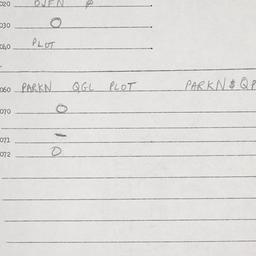 020 OJFN φ
030 O
040 PLOT
060 PARKN QGL PLOT PARKN$QP
070 O
071 –
072 O